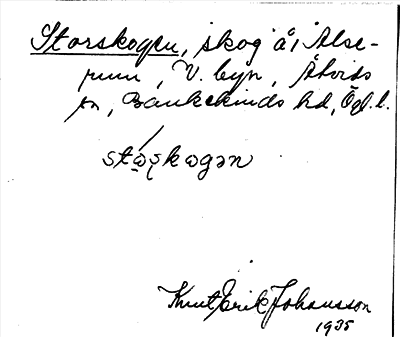 Storskogen, skog å, Alse-
rum, V. byn, Åtvids
sn, Bankekinds hd, Ögl.
stɷ̀ʂkogən
Knut Erik Johansson
1935